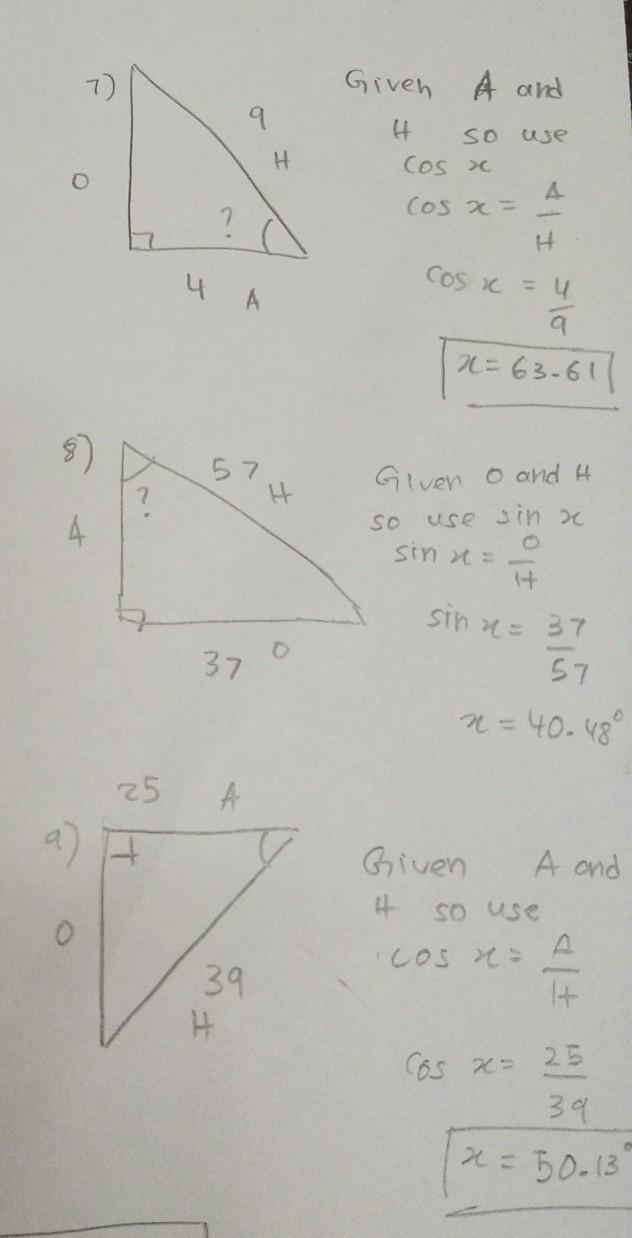 7)
9
H
O
?
4 A
Given A and
H so use
cos x
cos x = A/H
cos x = 4/9
x = 63.61
8)
57
H
?
A
37 O
Given O and H
so use sin x
sin x = O/H
sin x = 37/57
x = 40.48°
25 A
9)
O
39
H
Given A and
H so use
cos x = A/H
cos x = 25/39
x = 50.13°